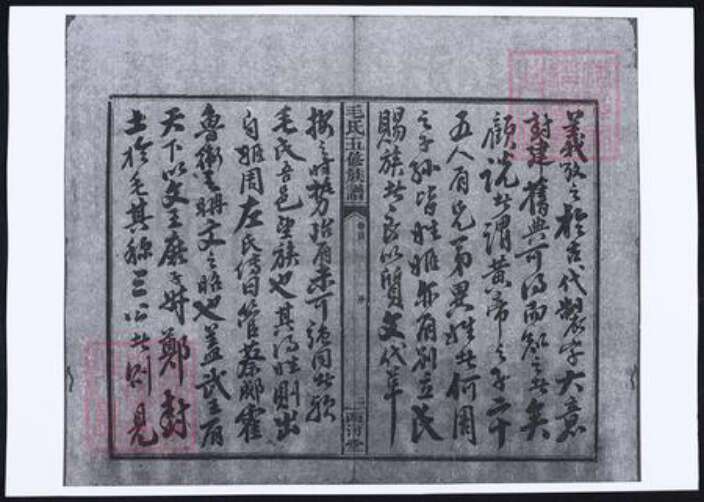 義攷之於古代製字大意
封建舊典可得而知之者矣
顧說者謂黃帝之子二十
五人有兄弟異姓者何周
之子孫皆姓姬亦有別立氏
賜族者良以質文代革
毛氏五修族譜
卷首
序
二
西河堂
按之時勢殆有未可強同者歟
毛氏吾邑望族也其得姓則出
自姬周左氏傳曰管蔡郕霍
魯衛毛聃文之昭也蓋武王有
天下以文王庶子叔鄭封
土於毛其稱三公者則見